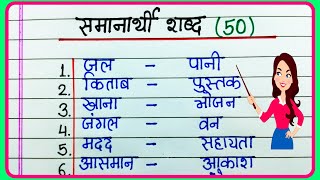 समानार्थी शब्द (50)
1. जल – पानी
2. किताब – पुस्तक
3. खाना – भोजन
4. जंगल – वन
5. मदद – सहायता
6. आसमान – आकाश